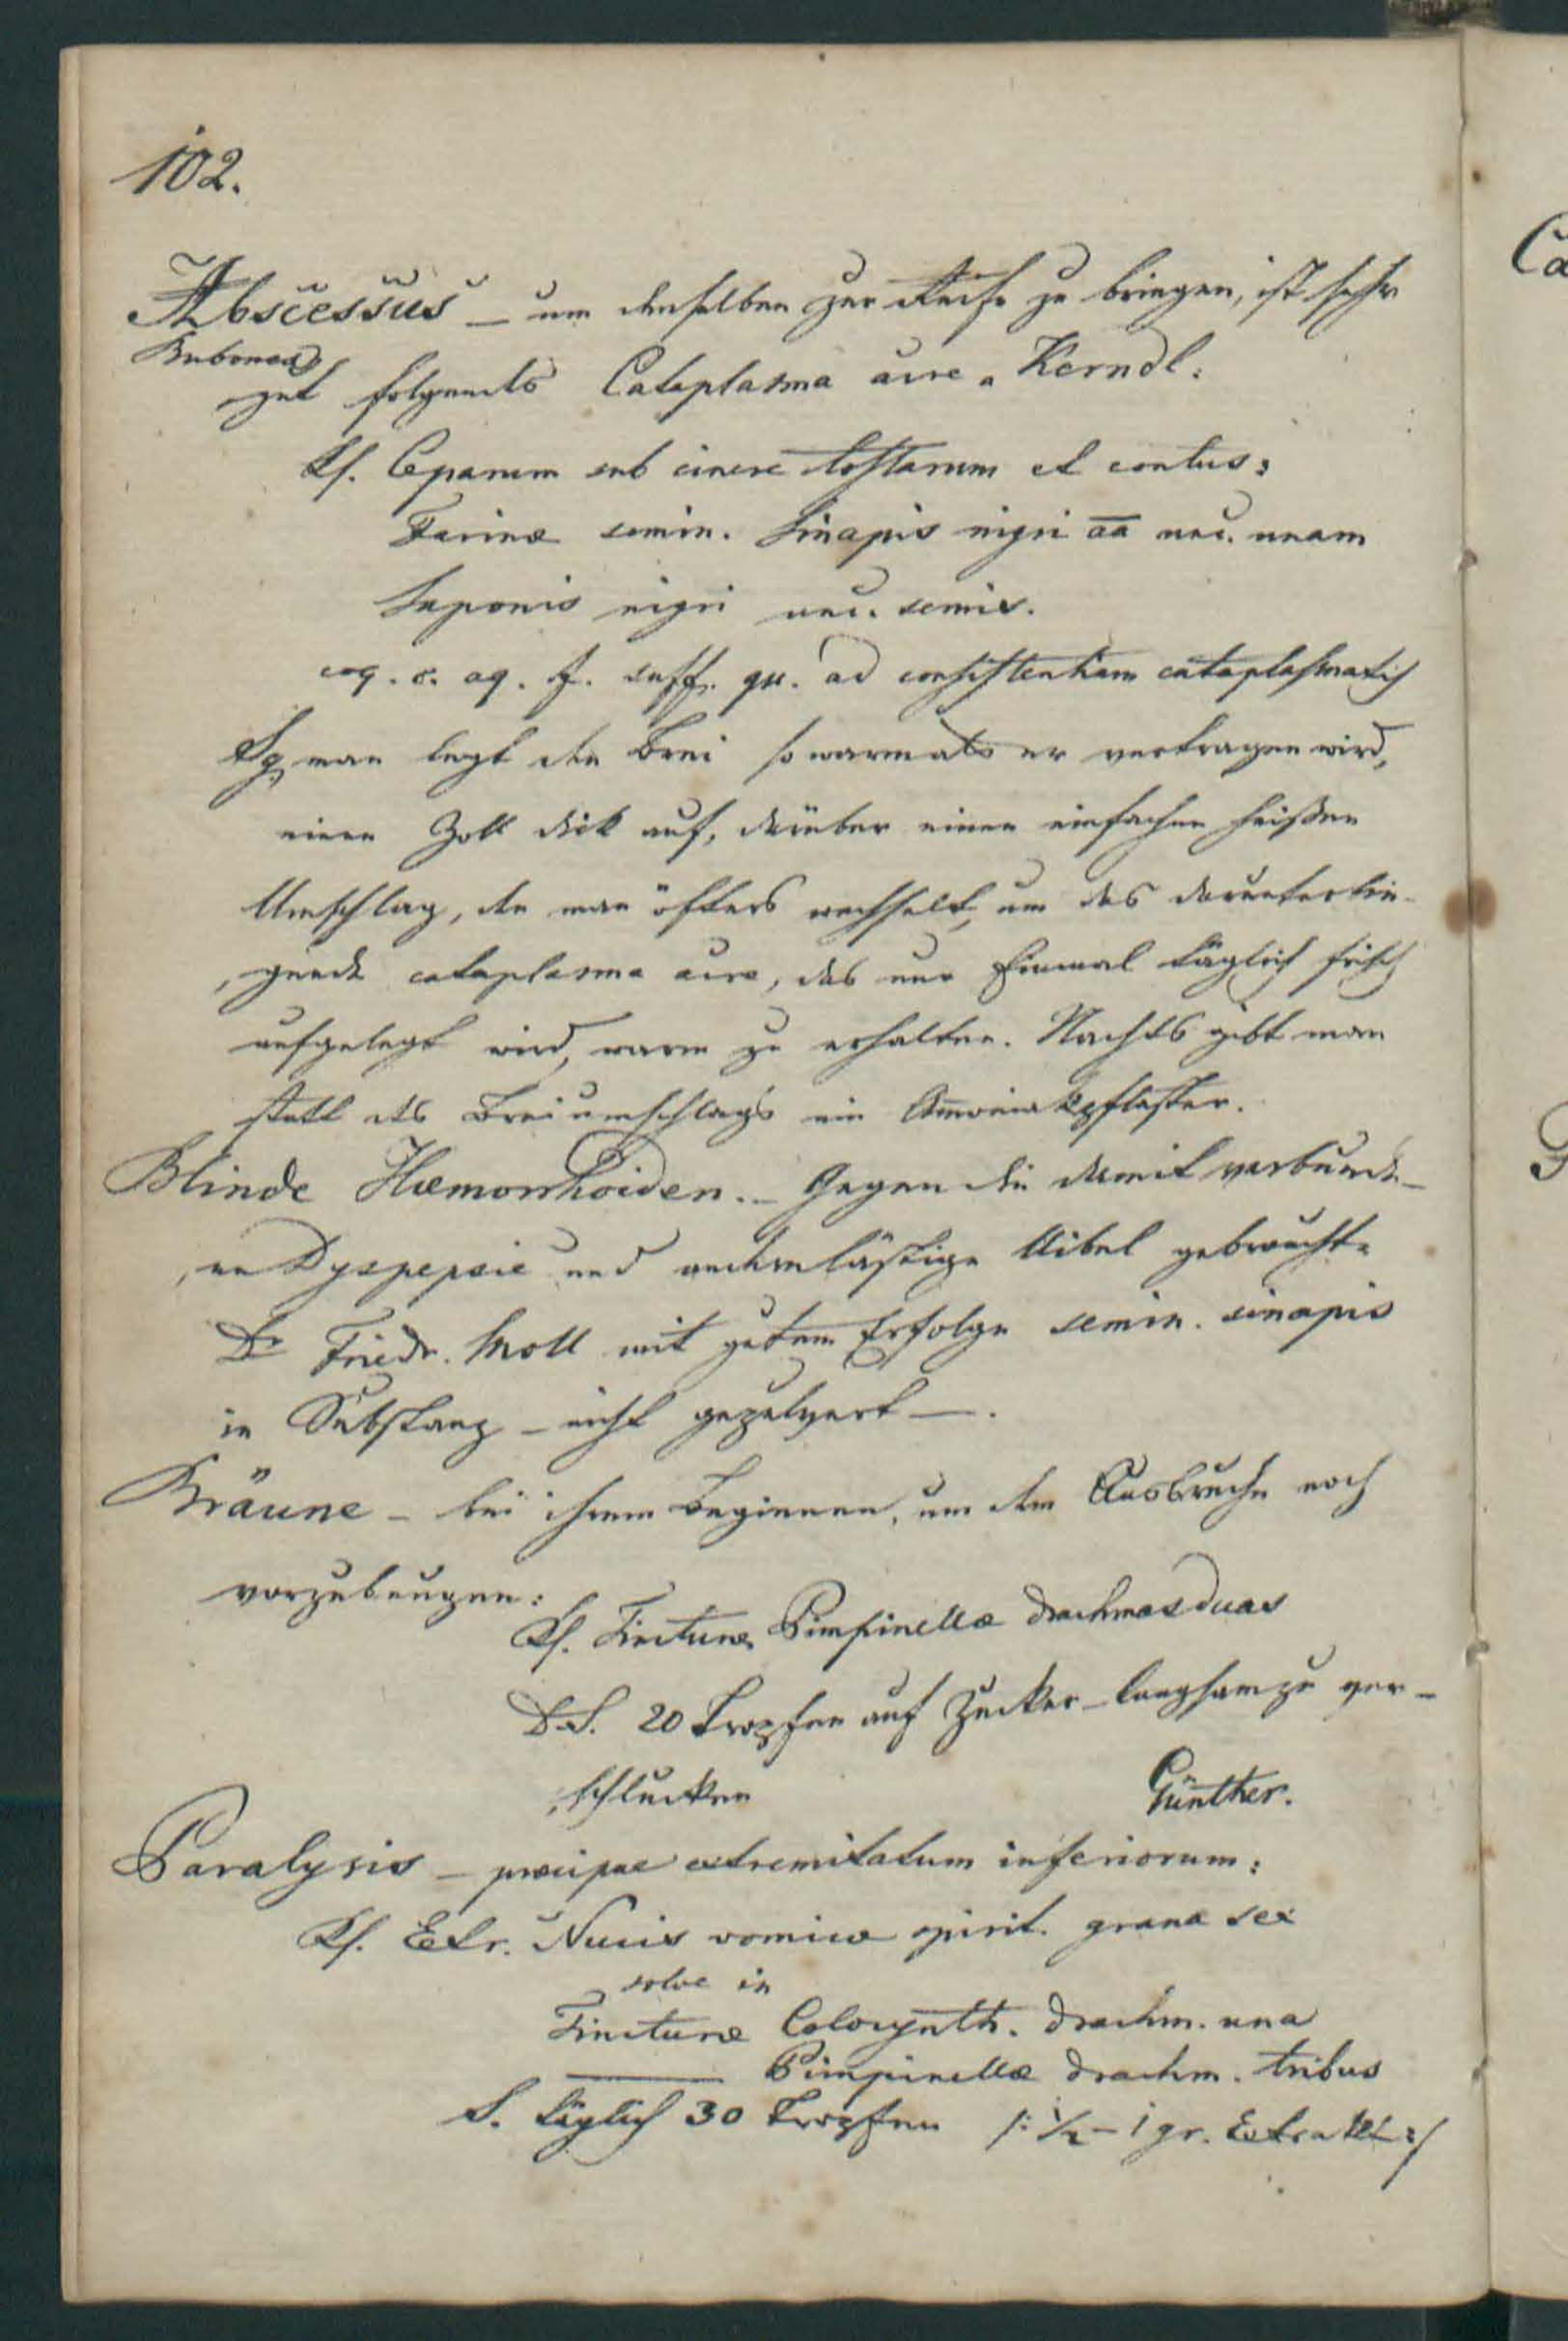 102.
Abscessus – um denselben zur Reife zu bringen, ist sehr
Bubones
gut folgendes Cataplasma acre n. Kerndl:
Rf. Ceparum sub cinere tostarum et contus:
Farinæ semin. Sinapis nigri aa unc. unam
Saponis nigri unc. semis.
coq. c. aq. f. suff. qu. ad consistentiam cataplasmatis
Sg. man legt den Brei so warm als er vertragen wird,
einen Zoll dick auf, darüber einen einfachen heißen
Umschlag, den man öfters wechselt, um das darunterlie-
gende cataplasma acre, das nur Einmal täglich frisch
aufgelegt wird, warm zu erhalten. Nachts gibt man
statt des Breiumschlags ein Ammoniakpflaster.
Blinde Hæmorrhoiden. – Gegen die damit verbunde-
ne Dyspepsie und andre lästige Uibel gebrauchte
Dr Friedr. Moll mit gutem Erfolge semin. sinapis
in Substanz – nicht gepulvert –.
Bräune – bei ihrem Beginnen, um dem Ausbruche noch
vorzubeugen:
Rf. Tincturæ Pimpinellæ drachmas duas
D.S. 20 Tropfen auf Zucker langsam zu ver-
schlucken
Günther.
Paralysis – præcipue extremitatum inferiorum:
Rf. Extr. Nucis vomicæ spirit. grana sex
solve in
Tincturæ Colocynth. drachm. una
——— Pimpinellæ drachm. tribus
S. täglich 30 Tropfen /: ½ – 1 gr. Extrakt :/
Ca